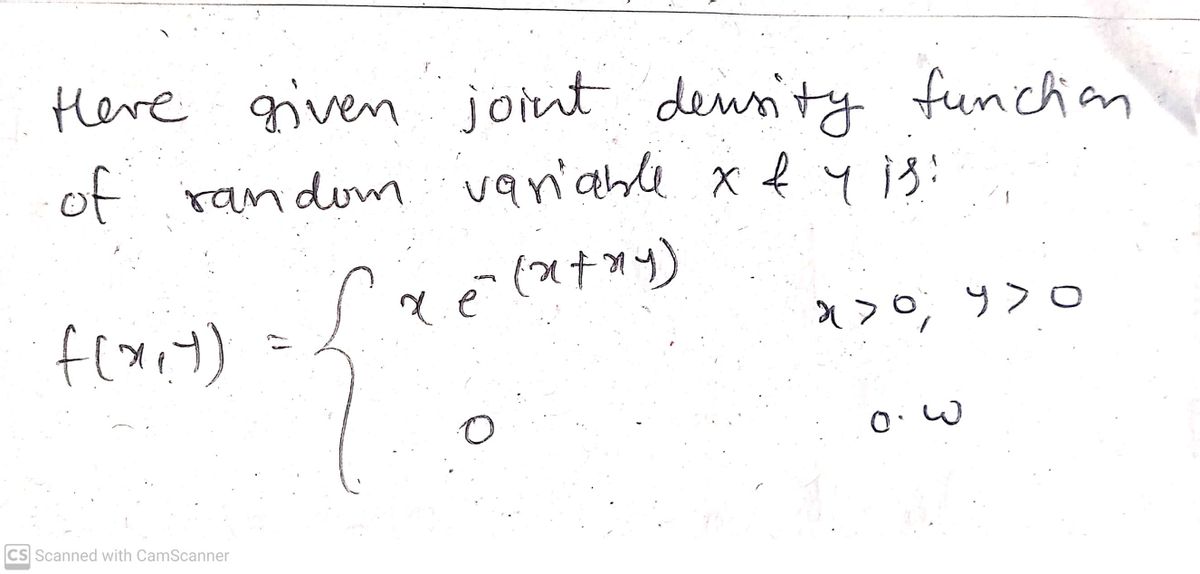 Here given joint density function
of random variable x & y is:
f(x,y) = { x e^-(x+xy) x>0, y>0
0 o.w
CS Scanned with CamScanner